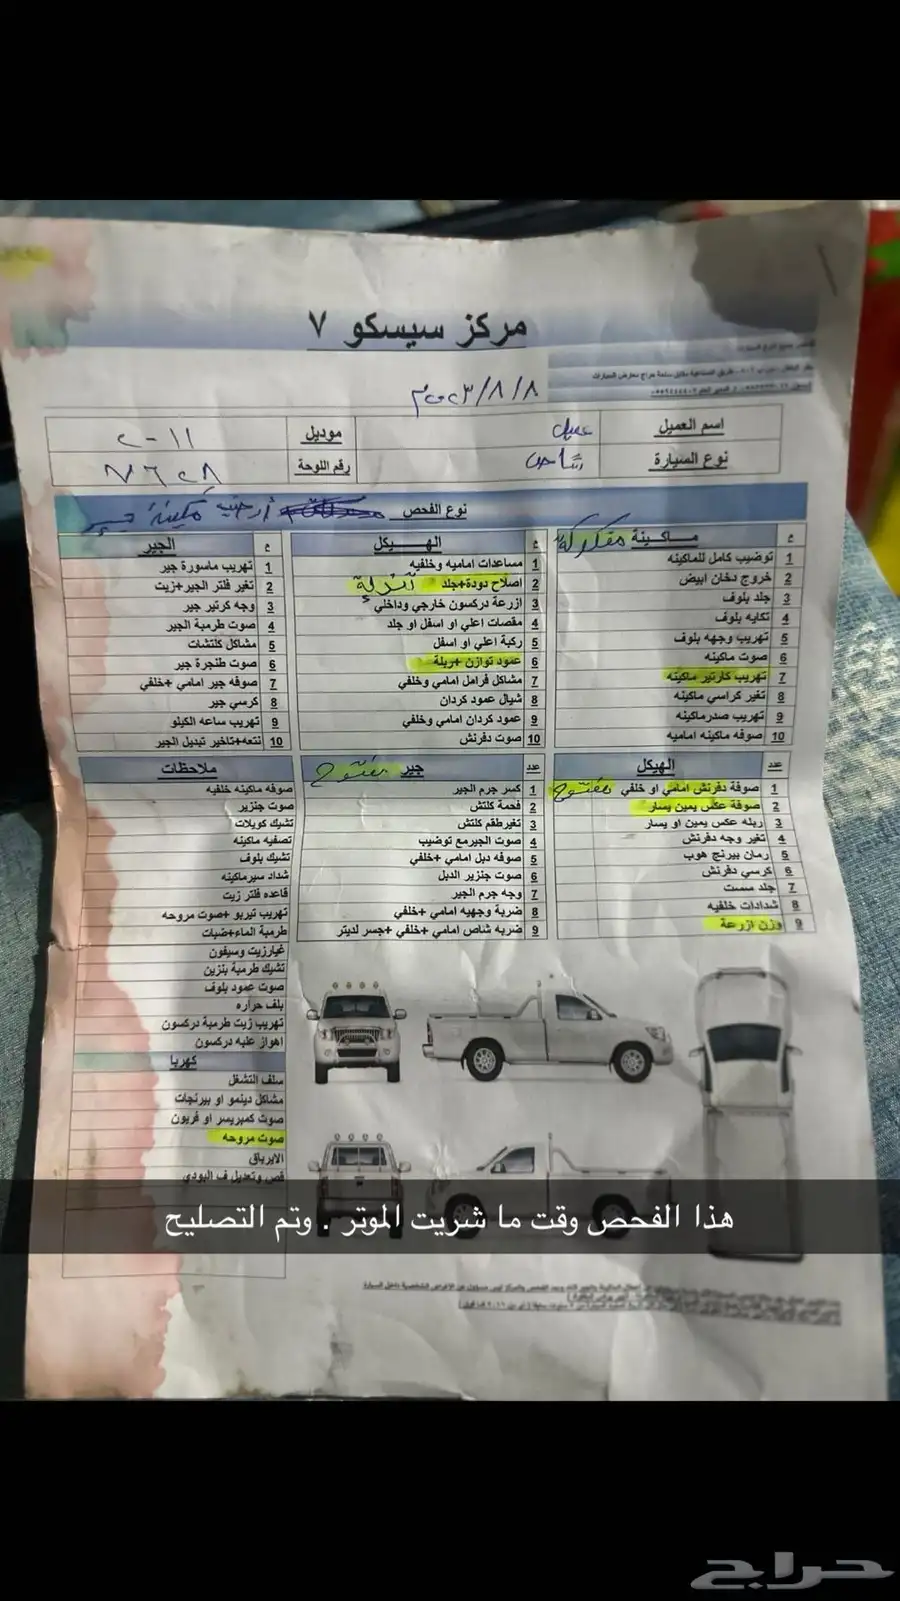 مركز سيسكو ٧
٢٠٢٣/٨/٨م
اسم العميل
عميل
موديل
٢٠١١
نوع السيارة
شاص
رقم اللوحة
٧٦٢٨
نوع الفحص
مكينة جير
م ماكينة مفكوكة
1 توضيب كامل للماكينه
2 خروج دخان ابيض
3 جلد بلوف
4 تكايه بلوف
5 تهريب وجهه بلوف
6 صوت ماكينه
7 تهريب كارتير ماكينه
8 تغير كراسي ماكينه
9 تهريب صدرماكينه
10 صوفه ماكينه اماميه
م الهيكل
1 مساعدات اماميه وخلفيه
2 اصلاح دودة+جلد
3 ازرعة دركسون خارجي وداخلي
4 مقصات اعلي او اسفل او جلد
5 ركبة اعلي او اسفل
6 عمود توازن +ربلة
7 مشاكل فرامل امامي وخلفي
8 شيال عمود كردان
9 عمود كردان امامي وخلفي
10 صوت دفرنش
م الجير
1 تهريب ماسورة جير
2 تغير فلتر الجير+زيت
3 وجه كرتير جير
4 صوت طرمبة الجير
5 مشاكل كلتشات
6 صوت طنجرة جير
7 صوفه جير امامي +خلفي
8 كرسي جير
9 تهريب ساعه الكيلو
10 نتعه+تاخير تبديل الجير
عدد الهيكل
1 صوفة دفرنش امامي او خلفي مفتوح
2 صوفة عكس يمين يسار
3 ربله عكس يمين او يسار
4 تغير وجه دفرنش
5 رمان بيرنج هوب
6 كرسي دفرنش
7 جلد سست
8 شدادات خلفيه
9 وزن ازرعة
عدد جير مفتوح
1 كسر جرم الجير
2 فحمة كلتش
3 تغيرطقم كلتش
4 صوت الجيرمع توضيب
5 صوفه دبل امامي +خلفي
6 صوت جنزير الدبل
7 وجه جرم الجير
8 ضربة وجهيه امامي +خلفي
9 ضربه شناص امامي +خلفي +جسر لديتر
ملاحظات
صوفه ماكينه خلفيه
صوت جنزير
تشيك كويلات
تصفيه ماكينه
تشيك بلوف
شداد سيرماكينه
قاعده فلتر زيت
تهريب تيربو +صوت مروحه
طرمبة الماء+ضبات
غيارزيت وسيفون
تشيك طرمبة بنزين
صوت عمود بلوف
بلف حراره
تهريب زيت طرمبة دركسون
اهواز عليه دركسون
كهربا
سلف التشغل
مشاكل دينمو او بيرنجات
صوت كمبريسر او فريون
صوت مروحه
الايرباق
قص وتعديل ف البودي
هذا الفحص وقت ما شريت الموتر . وتم التصليح
حراج